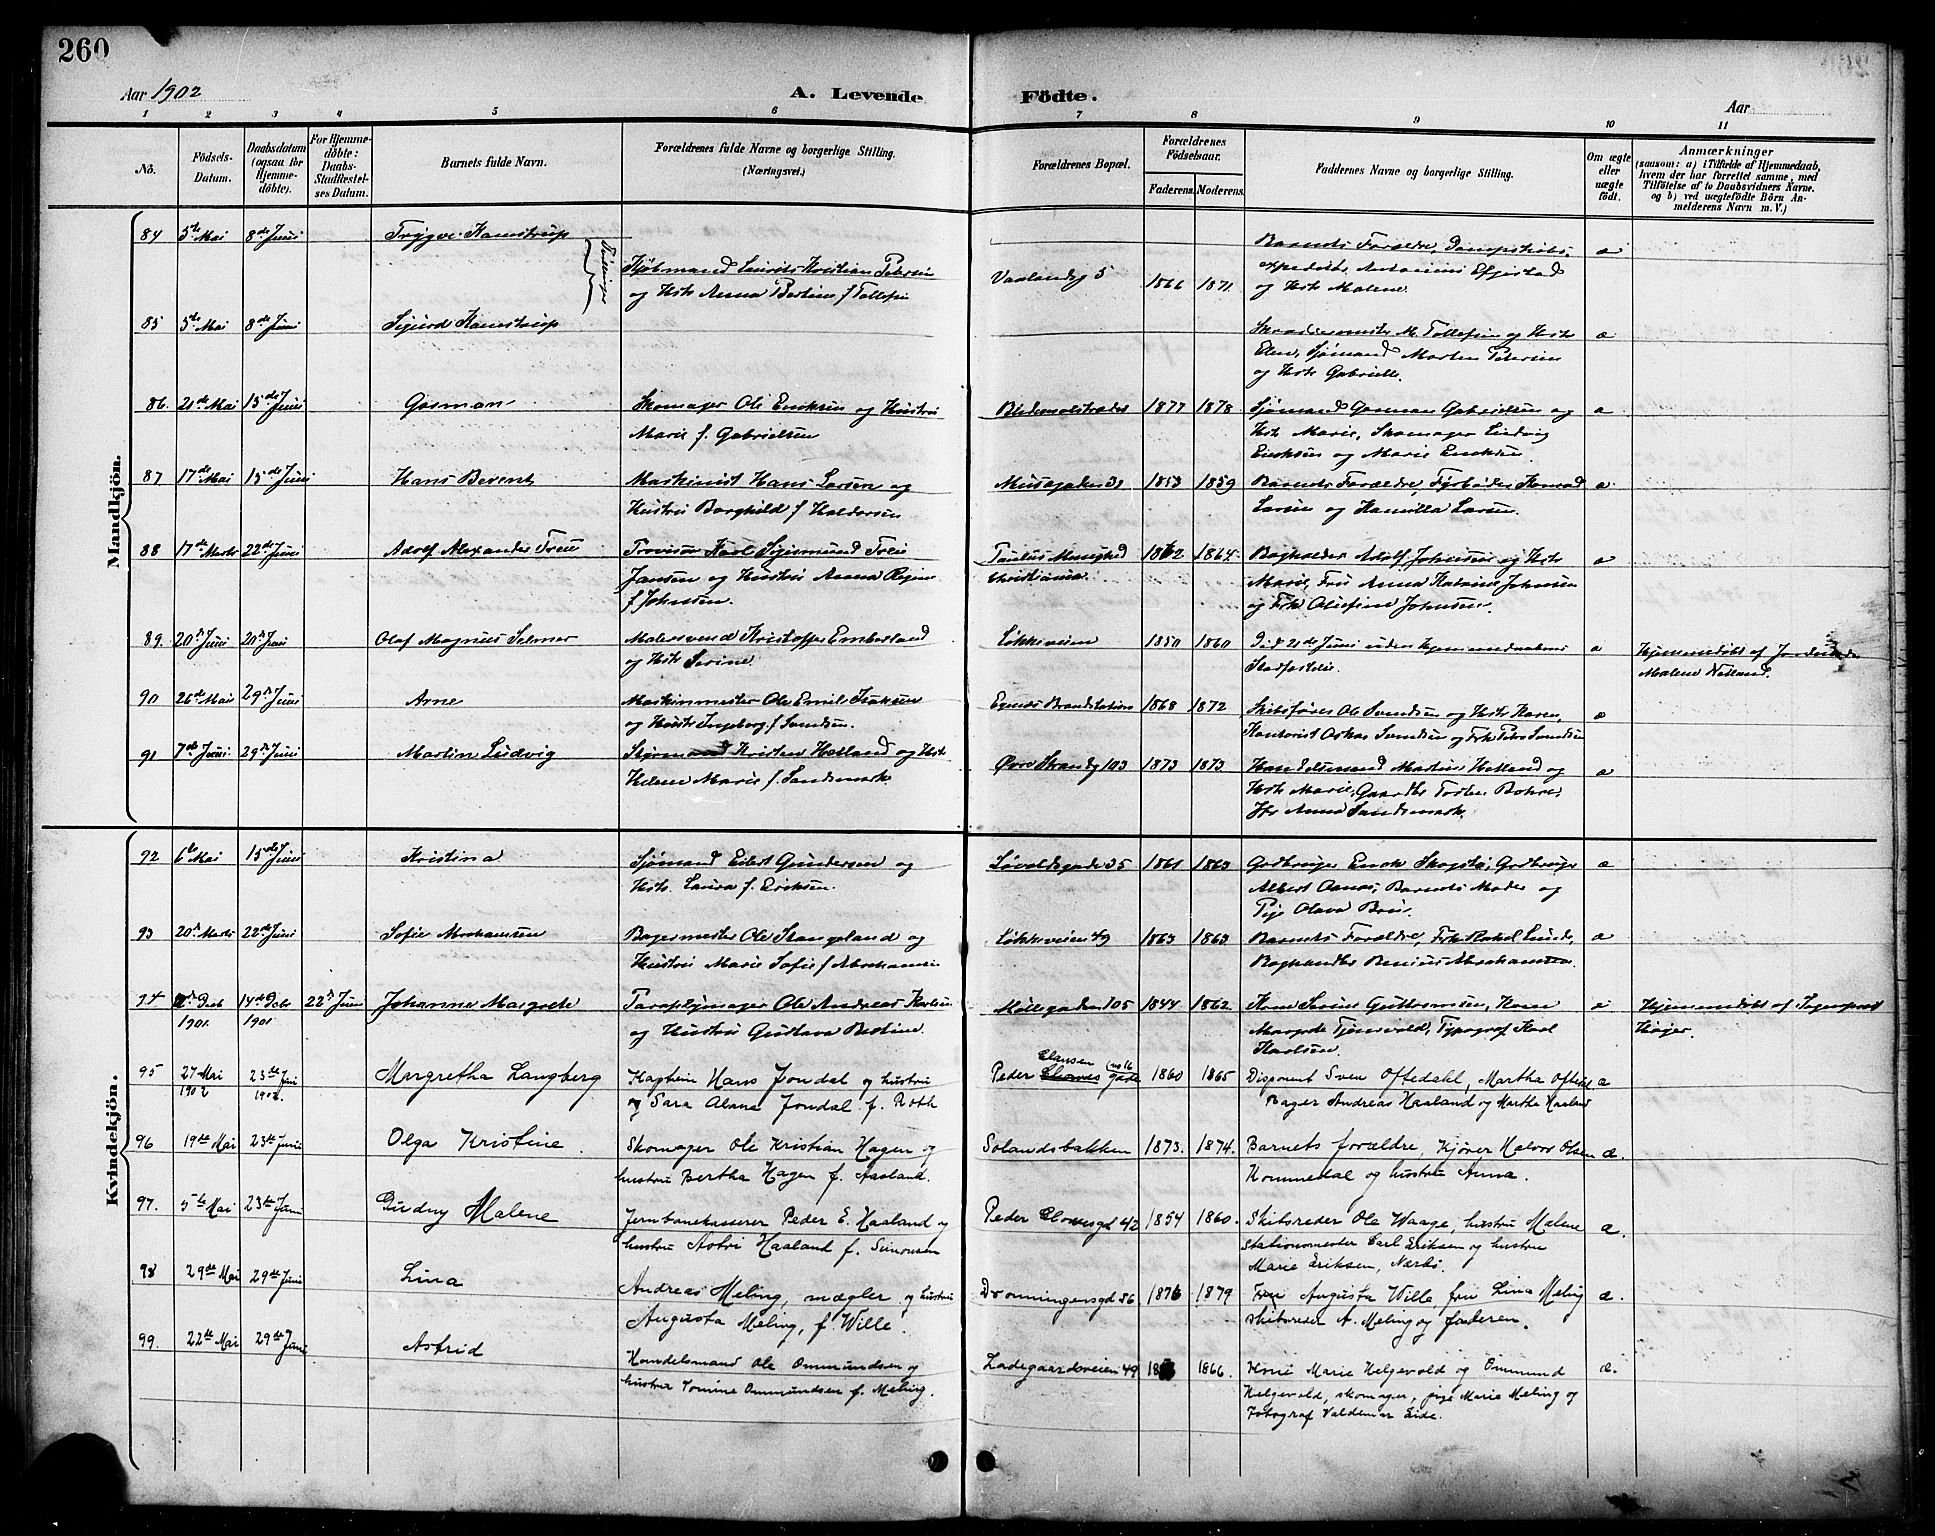 260
Aar 1902
A. Levende Födte.
Aar
1 2 3 4 5 6 7 8 9 10 11
No.
Födsels-Datum.
Daabsdatum (ogsaa for Hjemme-döbte).
For Hjemme-döbte: Daabs-Stadfæstel-ses Datum.
Barnets fulde Navn.
Forældrenes fulde Navne og borgerlige Stilling. (Næringsvei.)
Forældrenes Bopæl.
Forældrenes Födselsaar.
Faderens. Moderens.
Faddernes Navne og borgerlige Stilling.
Om ægte eller uægte födt.
Anmærkninger
(saasom: a) i Tilfælde af Hjemmedaab, hvem der har forrettet samme, med Tilföielse af to Daabsvidners Navne. og b) ved uægtefödte Börn Anmelderens Navn m. V.)
Mandkjön.
84 5te Mai 8de Juni Trygve Kamstrup
Tvillinger
Kjöbmand Laurits Kristian Petersen
og Hstr Anna Bertine f Tollefsen
Vaalandsg 5 1866 1871
Barnets Forældre, Dampskibs-
expeditör Antonius Efjestad
og Hstr Malene.
æ
85 5te Mai 8de Juni Sigurd Kamstrup
Skræddermester M. Tollefsen og Hstr
Elen, Sjömand Morten Petersen
og Hstr Gabrielle.
æ
86. 21de Mai 15de Juni Gosman
Skomager Ole Eriksen og Hustru
Marie f. Gabrielsen
1877 1878
Sjömand Gosman Gabrielsen og
Hstr Marie, Skomager Ludvig
Eriksen og Marie Eriksen
æ
87 17de Mai 15de Juni Hans Berent
Maskinist Hans Larsen og
Hustru Borghild f Haldorsen
Musegaden 31 1853 1859
Barnets Forældre, Fyrböder Konrad
Larsen og Kamilla Larsen.
æ
88 17de Marts 22de Juni Adolf Alexander Treu
Provisor Karl Sigismund Treu
Jansen og Hustru Anna Regine
f Johnsen.
Paulus Menighed
Christiania. 1862 1864.
Bogholder Adolf Johnsen og Hstr
Marie, Fru Anna Katrine Johnsen
og Frk Oluefine Johnsen.
æ
89. 20de Juni 20de Juni Olaf Magnus Selmer
Malersvend Kristoffer Emberland
og Hstr Serine.
Lökkeveien 1850 1860
Död 21de Juni uden Hjemmedaabens
Stadfæstelse.
æ
Hjemmedöbt af Jordemoder
Malene Netland.
90 26de Mai 29de Juni Arne
Maskinmester Ole Emil Isaksen
og Hustr Ingeborg f. Svendsen.
Egenæs Brandstation 1868 1872
Skibsförer Ole Svendsen og Hstr Karen,
Kontorist Oskar Svendsen og Frk Petra Svendsen
æ
91 7de Juni 29de Juni Martin Ludvig
Styrmand Kristen Helland og Hstr
Helene Marie f. Sandsmark.
Övre Strandg 103 1873 1873
Handelsmand Martin Helland og
Hstr Marie, Gaardbr Torsten Bohre,
Anna Sandsmark.
æ
Kvindekjön.
92 6te Mai 15de Juni Kristina
Sjömand Edert Gundersen og
Hstr. Laura f. Eriksen.
Lövoldsgaden 35 1861 1863
Gadbruger Enok Skogstö, Gadbruger
Albert Aanes, Barnets Moder og
Pige Olava Bru.
æ
93 20de Marts 22de Juni Sofie Abrahamsen
Bagermester Ole Stangeland og
Hustru Marie Sofie f Abrahamsen
Lökkeveien 49 1863 1863
Barnets Forældre, Frk Rakel Lunde,
Boghandler Benius Abrahamsen.
æ
94 Decb 1901. 14de Decbr 1901 22de Juni Johanne Margrete
Paraplymager Ole Andreas Karlsen
og Hustru Gustava Bertine.
Möllegaden 105 1844 1862.
Kone Serine Guttormsen, Kone
Margrete Tjensvold, Typograf Karl
Karlsen.
æ
Hjemmedöbt af Sogneprest
Höyer.
95 27 Mai 1902 23de Juni 1902. Margretha Langberg
Kaptein Hans Jondal og hustru
Sara Alana Jondal f. Roth
Peder Clausen gade (no 16 1860 1865
Disponent Sven Oftedahl, Martha Oftedal
Bager Andreas Haaland og Martha Haaland
æ
96 19de Mai 23de Juni Olga Kristine.
Skomager Ole Kristian Hagen og
hustru Bertha Hagen f. Aasland.
Solandsbakken 1873. 1874.
Barnets forældre, Kjörer Halvor Olsen
Kommedal og hustru Anna.
æ.
97. 5te Mai 23de Juni Gudny Malene
Jernbanekasserer Peder E. Haaland og
hustru Astri Haaland f. Simonsen
Peder Clausgd 42 1854 1860.
Skibsreder Ole Waage, hustru Malene
Stationsmester Carl Eriksen og hustru
Marie Eriksen, Nærbö.
æ.
98 29de Mai 29de Juni Lina
Andreas Meling, mægler og hustru
Augusta Meling, f. Wille.
Dronningensgd 36 1876 1879
Fru Augusta Wille, fru Lina Meling
skibsreder A. Meling og faderen.
æ.
99. 22de Mai 29de Juni Astrid
Handelsmand Ole Ommundsen og
hustru Tomine Ommundsen f. Meling.
Ladegaardsveien 49 1866.
Kone Marie Helgevold og Ommund
Helgevold, skomager, pige Marie Meling og
Fotograf Valdemar Eide.
æ.